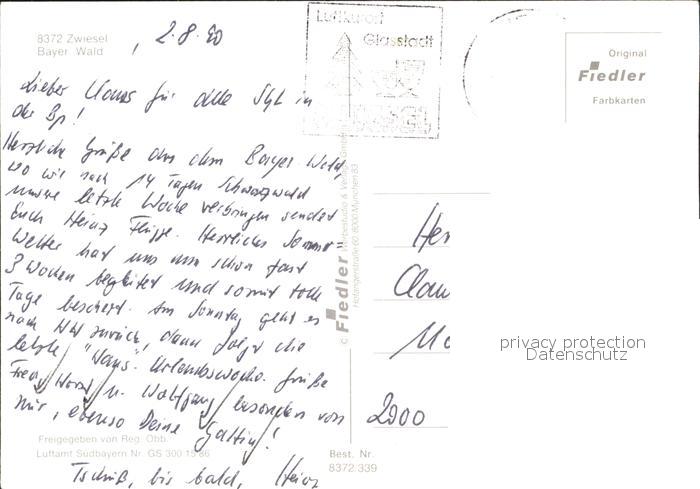 8372 Zwiesel
Bayer. Wald
, 2.8.90
Luftkurort
Glasstadt
ZWIESEL
Original
Fiedler
Farbkarten
Lieber Claus für alle Slg in
der Bp!
Herzliche Grüße aus dem Bayer Wald,
wo wir nach 14 Tagen Schwarzwald
unsere letzte Woche verbringen sendet
Euch Heinz Herrliches Sommer
Wetter hat uns nun schon fast
3 Wochen begleitet und somit tolle
Tage beschert. Am Sonntag geht es
nach HH zurück, dann folgt die
letzte "Haus"-Urlaubswoche. Grüße
Fred, Horst u. Wolfgang besonders von
mir, ebenso Deine Gattin!
Tschüß, bis bald, Heinz
© Fiedler
Hofangerstraße 60, 8000 München 83
Her
Clau
2000
privacy protection
Datenschutz
Freigegeben von Reg. Obb.
Luftamt Südbayern Nr. GS 300 15 86
Best. Nr.
8372 339